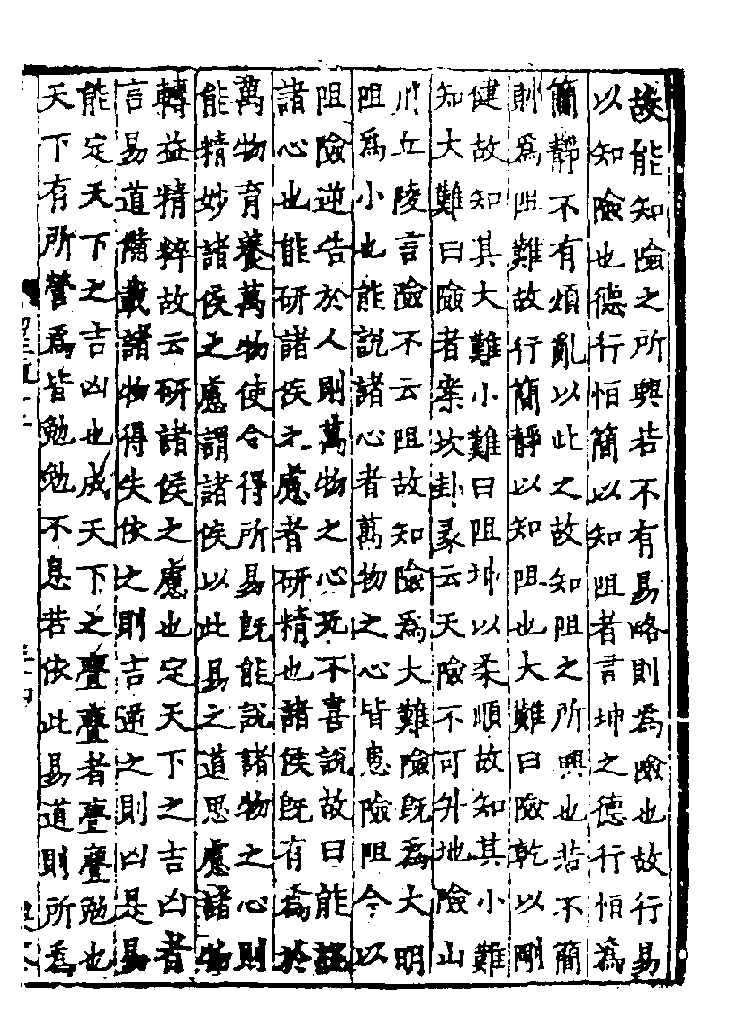 故能知險之所興若不有易略則為險也故行易
以知險也德行恒簡以知阻者言坤之德行恒為
簡靜不有煩亂以此之故知阻之所興也若不簡
則為阻難故行簡靜以知阻也大難曰險乾以剛
健故知其大難小難曰阻坤以柔順故知其小難
知大難曰險者案坎卦彖云天險不可升地險山
川丘陵言險不云阻故知險為大難險既為大明
阻為小也能說諸心者萬物之心皆患險阻今以
阻險逆告於人則萬物之心无不喜說故曰能說
諸心也能研諸侯之慮者研精也諸侯既有為於
萬物育養萬物使令得所易既能說諸物之心則
能精妙諸侯之慮謂諸侯以此易之道思慮諸物
轉益精粹故云研諸侯之慮也定天下之吉凶者
言易道備載諸物得失依之則吉逆之則凶是易
能定天下之吉凶也成天下之亹亹者亹亹勉也
天下有所營為皆勉勉不息若依此易道則所為